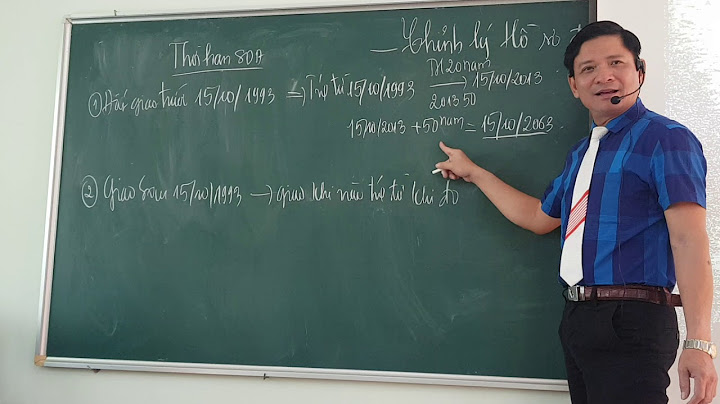 Chỉnh lý Hồ sơ đ
Thời hạn SDĐ
① Đất giao trước 15/10/1993 => Tính từ 15/10/1993 TH 20 năm → 15/10/2013
2013 50
15/10/2013 + 50 năm = 15/10/2063
② Giao sau 15/10/1993 → giao khi nào tính từ khi đó